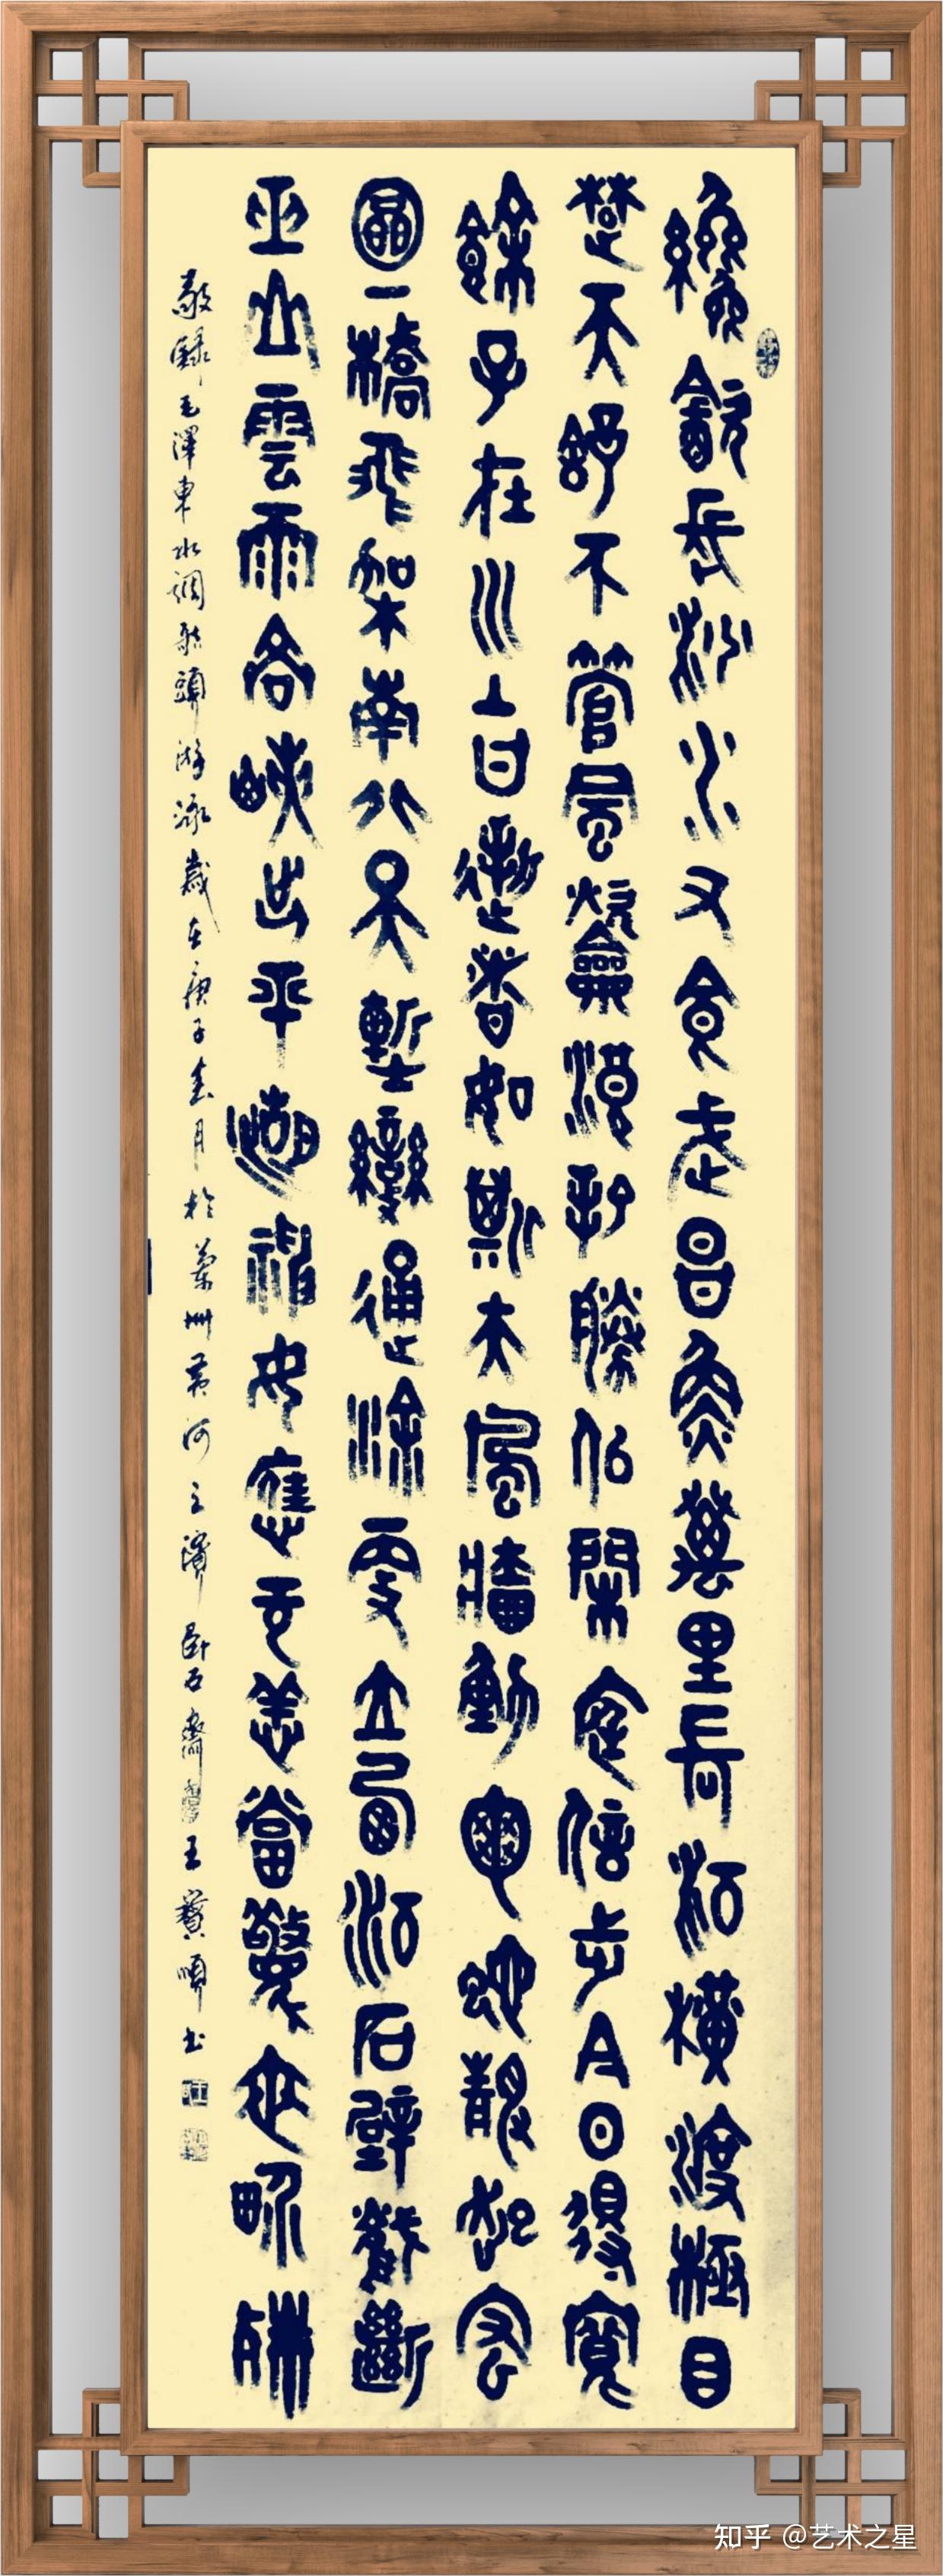 纔飲長沙水又食武昌魚萬里長江橫渡極目
楚天舒不管風吹浪打勝似閑庭信步今日得寬
餘子在川上曰逝者如斯夫風檣動龜蛇靜起宏
圖一橋飛架南北天塹變通途更立西江石壁截斷
巫山雲雨高峽出平湖神女應无恙當驚世界殊
敬錄毛澤東水調歌頭游泳歲在庚子春月於蘭州黃河之濱卧石齋王寶順書
知乎 @艺术之星